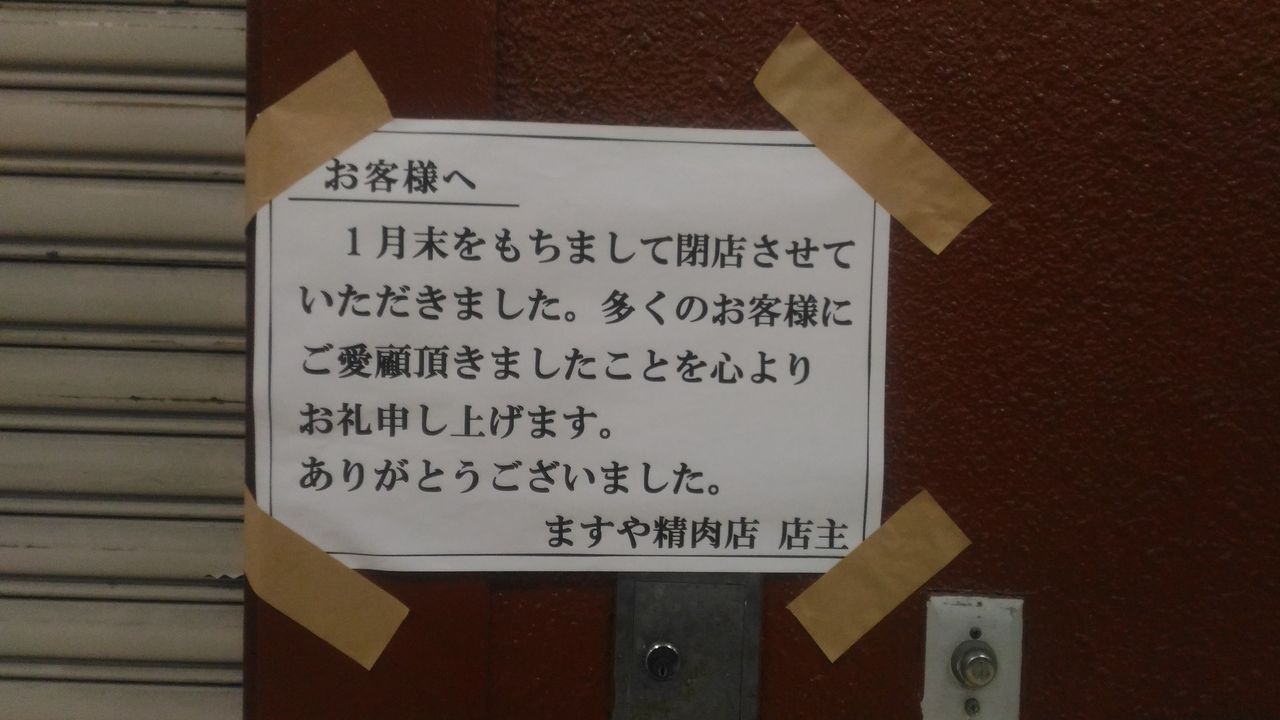 お客様へ
１月末をもちまして閉店させて
いただきました。多くのお客様に
ご愛顧頂きましたことを心より
お礼申し上げます。
ありがとうございました。
ますや精肉店 店主